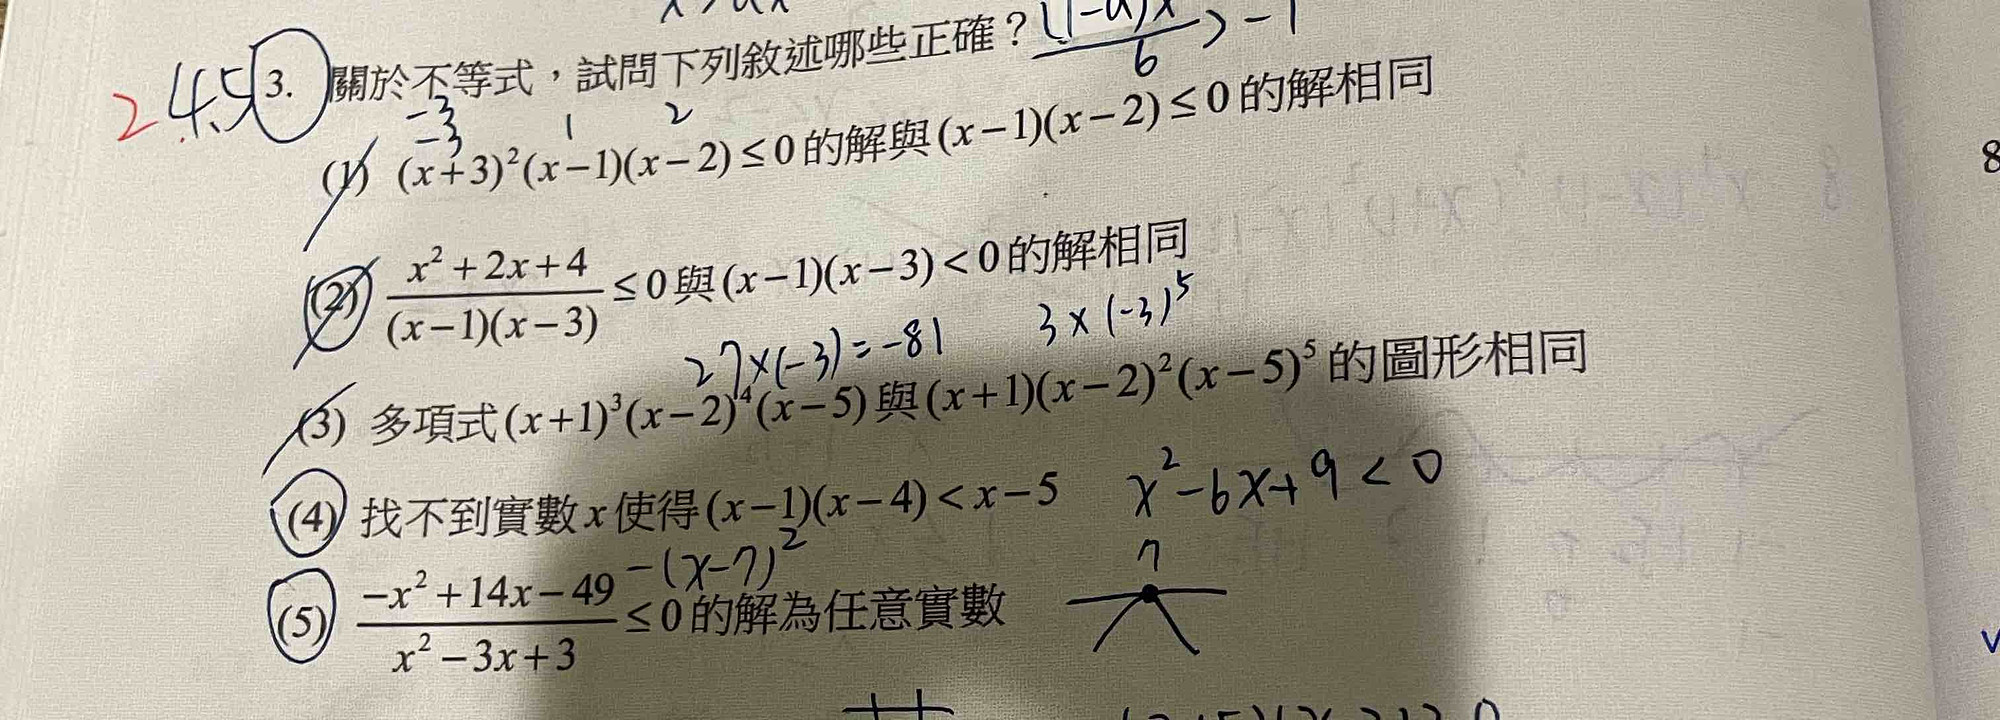 (1-a)x / 6 > -1
2 4.5 3. 關於不等式，試問下列敘述哪些正確？
-3 -3 1 2
(1) (x+3)²(x-1)(x-2) ≤ 0 的解與 (x-1)(x-2) ≤ 0 的解相同
8
(2) (x²+2x+4)/((x-1)(x-3)) ≤ 0 與 (x-1)(x-3) < 0 的解相同
27×(-3)=-81 3×(-3)⁵
(3) 多項式 (x+1)³(x-2)⁴(x-5) 與 (x+1)(x-2)²(x-5)⁵ 的圖形相同
(4) 找不到實數 x 使得 (x-1)(x-4) < x-5 x²-6x+9<0
-(x-7)² 7
(5) (-x²+14x-49)/(x²-3x+3) ≤ 0 的解為任意實數